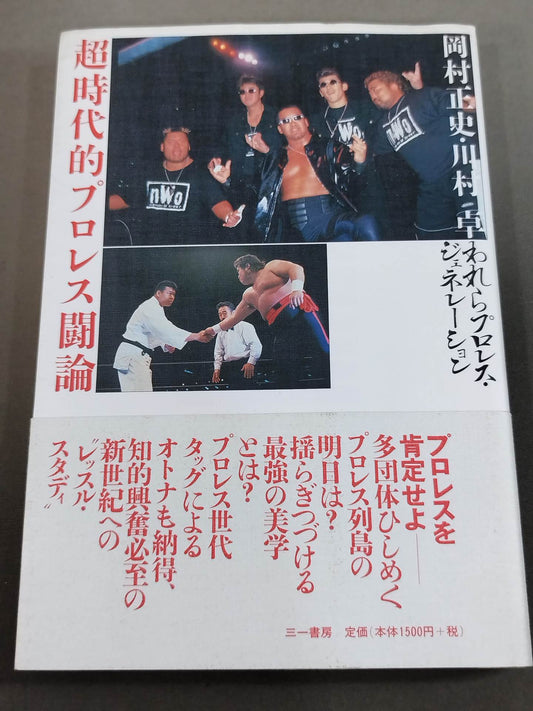 岡村正史・川村 卓
われらプロレス・
ジェネレーション
超時代的プロレス闘論
nWo
nWo
nWo
プロレスを
肯定せよ――
多団体ひしめく
プロレス列島の
明日は？
揺らぎつづける
最強の美学
とは？
プロレス世代
タッグによる
オトナも納得、
知的興奮必至の
新世紀への
〝レッスル・
スタディ〟
三一書房 定価（本体1500円＋税）